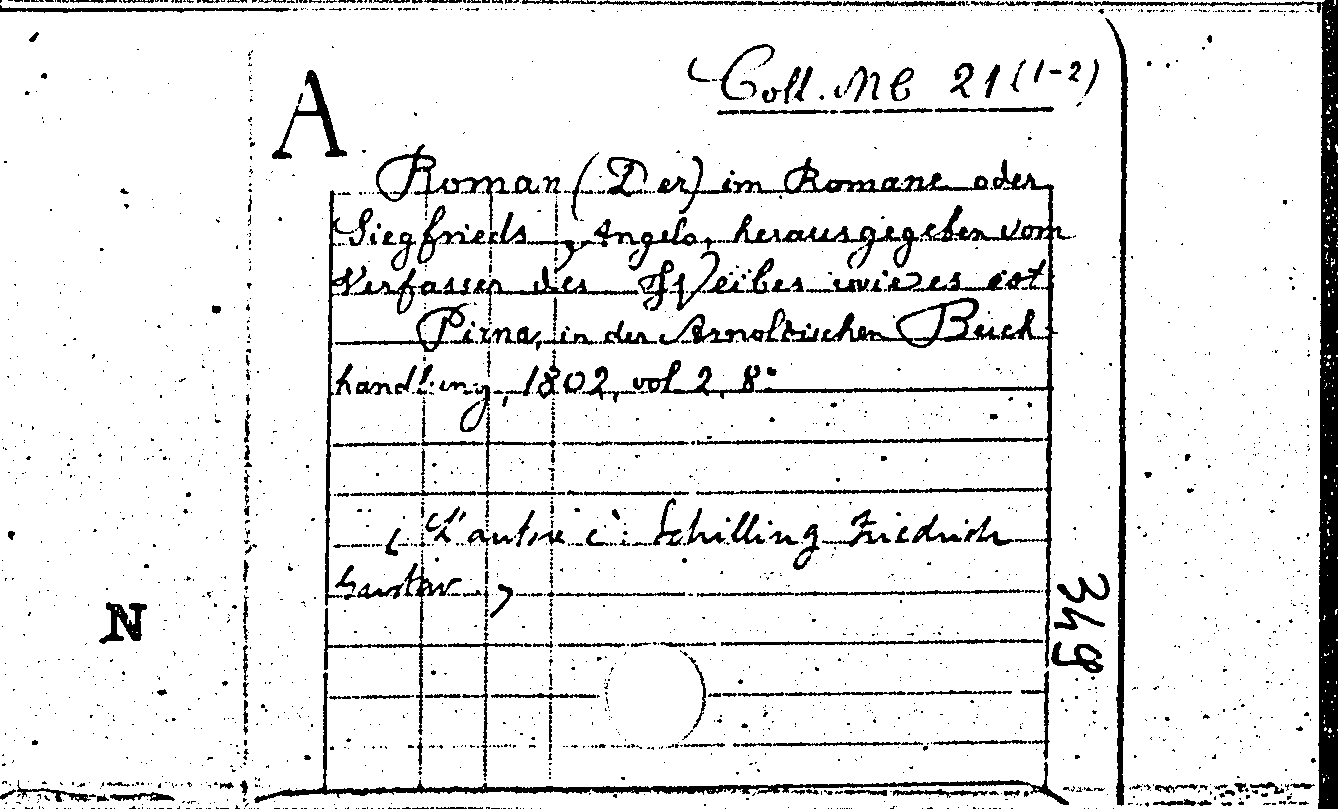 Coll. MC 21 (1-2)
A
Roman (Der) im Romane oder
Siegfrieds Angelo, herausgegeben vom
Verfasser des Weibes wie es ist
Pirna, in der Arnoldischen Buch-
handlung, 1802, vol 2, 8°
(L'autore è: Schilling Friedrich
Gustav)
N
349